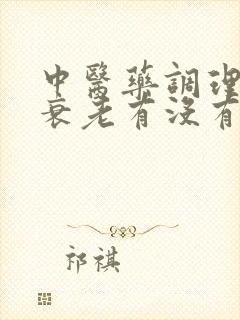 中醫藥調理
衰老有沒有
祁祺